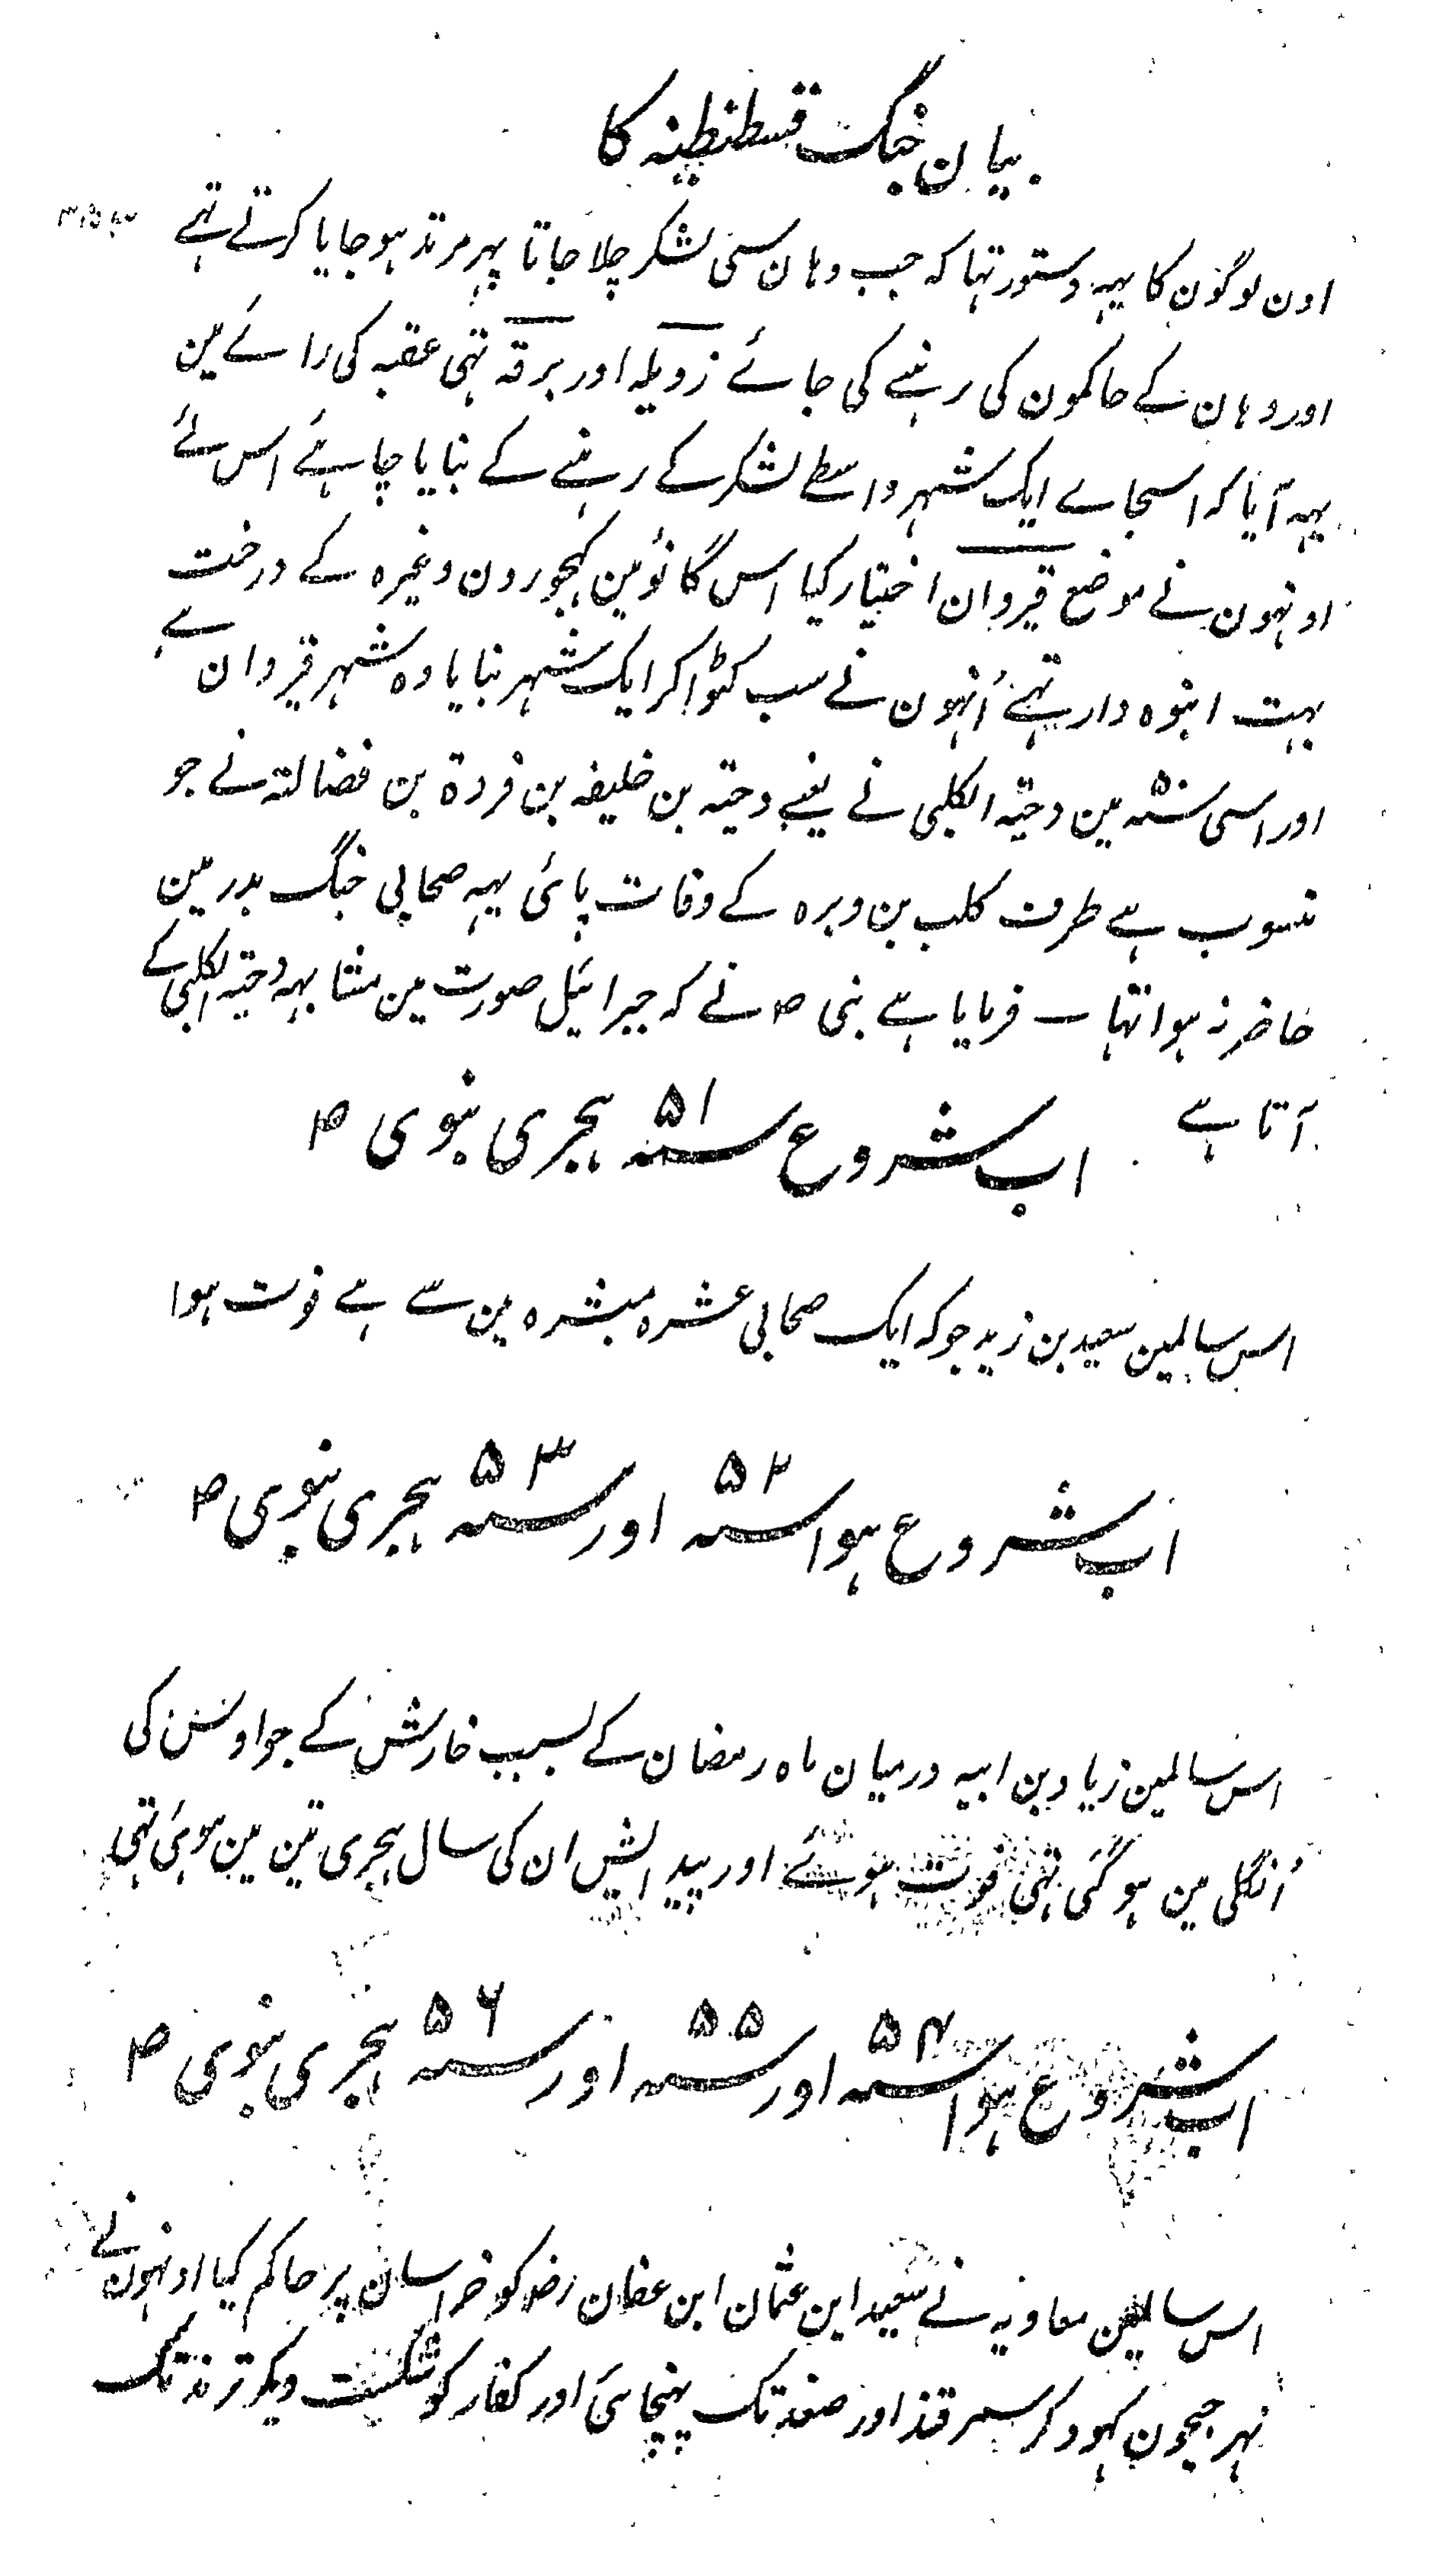 بیان جنگ قسطنطنیہ کا
اون لوگون کا یہہ دستور تہا کہ جب وہان سی لشکر چلا جاتا پہر مرتد ہو جایا کرتے تہے
اور وہان کے حاکمون کی رہنے کی جائے زویلہ اور برقہ تہی عقبہ کی رائے مین
یہہ آیا کہ اسجاے ایک شہر واسطے لشکر کے رہنے کے بنایا چاہئے اس لئے
اونہون نے موضع قیروان اختیار کیا اس گانؤ مین کہجورون وغیرہ کے درخت
بہت انبوہ دار تہے اُنہون نے سب کٹوا کر ایک شہر بنایا وہ شہر قیروان ہے
اور اسی سنہ ۵۰ مین دحیہ الکلبی نے یعنے دحیہ بن خلیفہ بن فردة بن فضالتہ نے جو
منسوب ہے طرف کلب بن وبرہ کے وفات پائی یہہ صحابی جنگ بدر مین
حاضر نہ ہوا تہا ۔ فرمایا ہے نبی ص نے کہ جبرائیل صورت مین مشابہہ دحیہ الکلبی کے
آتا ہے
اب شروع سنہ ۵۱ ہجری نبوی ص
اس سالمین سعید بن زید جو کہ ایک صحابی عشرہ مبشرہ مین سے ہے فوت ہوا
اب شروع ہوا سنہ ۵۲ اور سنہ ۵۳ ہجری نبوی ص
اس سالمین زیاد بن ابیہ درمیان ماہ رمضان کے بسبب خارش کے جو اوسکی
اُنگلی مین ہو گئی تہی فوت ہوئے اور پیدایش ان کی سال ہجری تین مین ہوئی تہی
اب شروع ہوا سنہ ۵۴ اور سنہ ۵۵ اور سنہ ۵۶ ہجری نبوی ص
اس سالمین معاویہ نے سعید ابن عثمان ابن عفان رضہ کو خراسان پر حاکم کیا اونہون نے
نہر جیحون کہود کر سمرقند اور صغد تک پہنچائی اور کفار کو شکست دیکر ترمذ تک